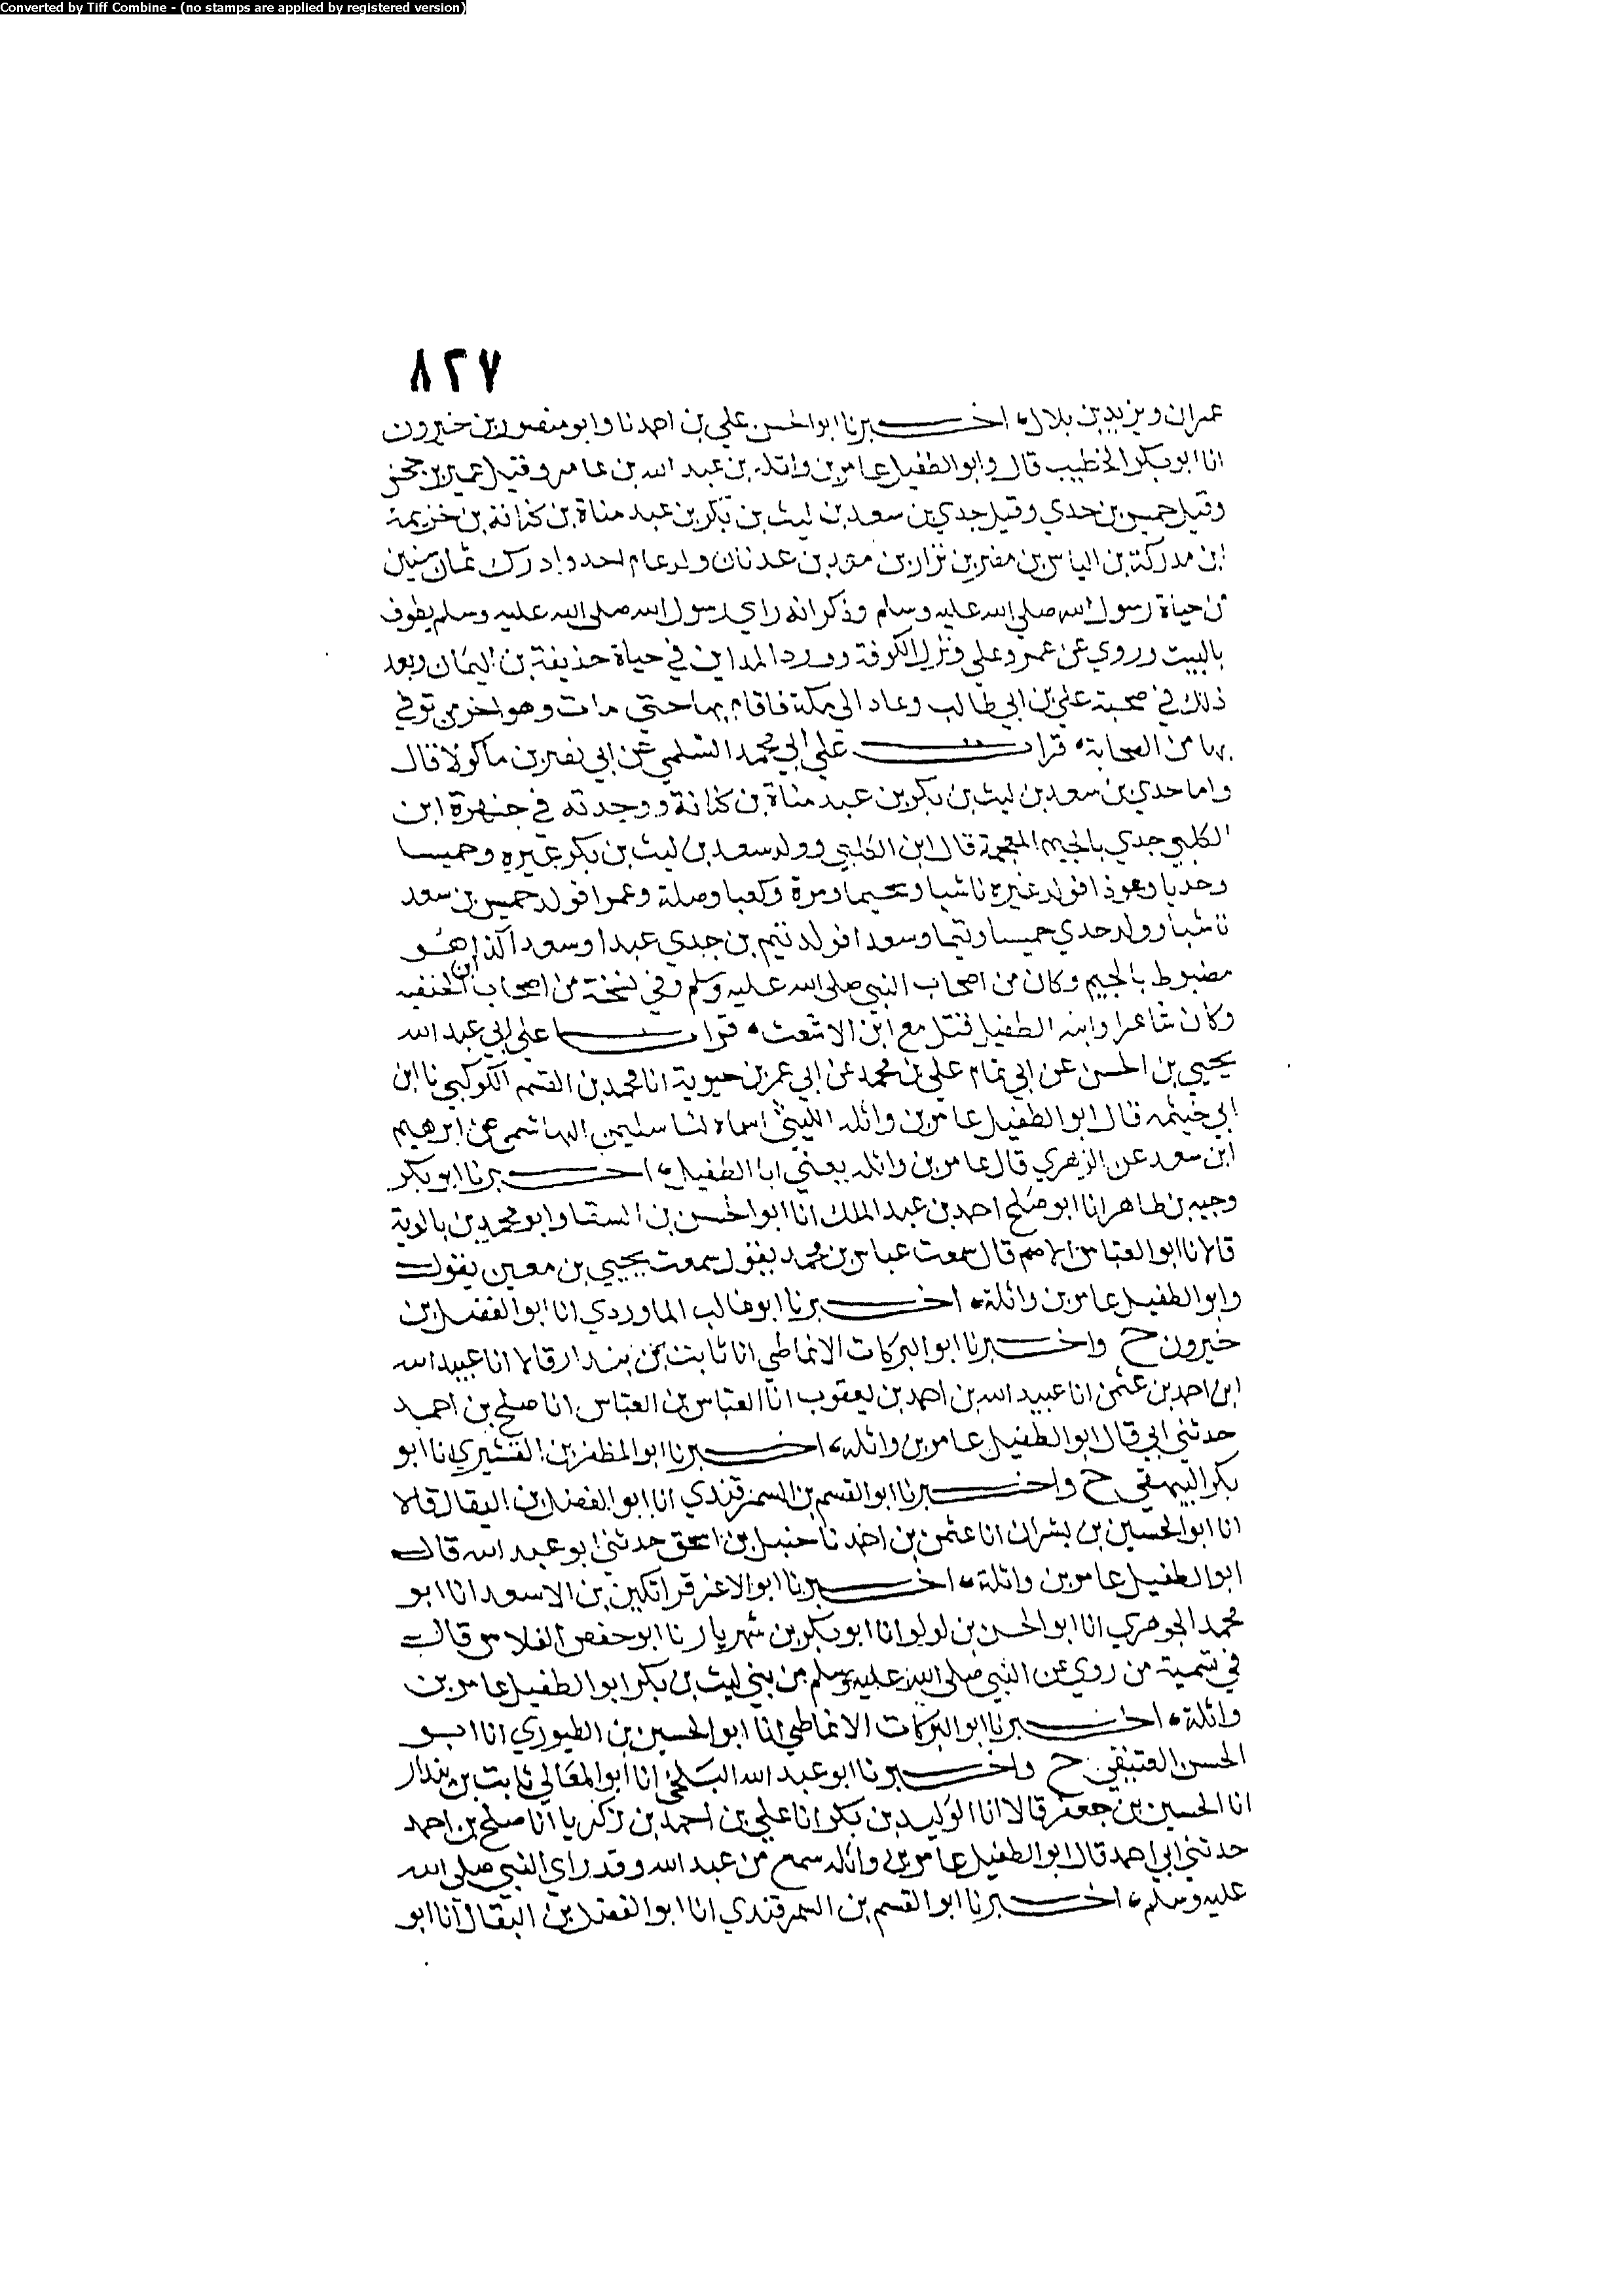 Converted by Tiff Combine - (no stamps are applied by registered version)
٨٢٧
عمران ويزيد بن بلال، اخـــبرنا ابو الحسن علي بن احمد نا وابو منصور بن خيرون
انا ابو بكر الخطيب قال وابو الطفيل عامر بن واثله بن عبد الله بن عامر وقيل عمير بن
وقيل حميس بن حدي وقيل جدي بن سعد بن ليث بن بكر بن عبد مناة بن كنانة بن خزيمة
ابن مدركة بن الياس بن مضر بن نزار بن معد بن عدنان ولد عام احد وادرك ثمان سنين
من حياة رسول الله صلى الله عليه وسلم وذكر انه راي رسول الله صلى الله عليه وسلم يطوف
بالبيت وروي عن عمر وعلي ونزل الكوفة وورد المداين في حياة حذيفة بن اليمان وبعد
ذلك في صحبة علي بن ابي طالب وعاد الى مكة فاقام بها حتي مات وهو اخر من توفي
بها من الصحابة، قرات علي ابي محمد السلمي عن ابي نصر بن ماكولا قال
واما حدي بن سعد بن ليث بن بكر بن عبد مناة بن كنانة ووجدته في جمهرة ابن
الكلبي جدي بالجيم المعجمة قال ابن الكلبي وولد سعد بن ليث بن بكر غيره وحميسا
وحديا وعوذا فولد غيره ناشبا و ومرة وكعبا وصلة وعمرا فولد حميس بن سعد
ناشبا وولد حدي حميسا وتيما وسعدا فولد تيم بن جدي عبدا وسعدا كذا هو
مضبوط بالجيم وكان من اصحاب النبي صلى الله عليه وسلم وفي نسخة من اصحاب ابن الحنفيه
وكان شاعرا وابنه الطفيل قتل مع ابن الاشعث، قرات علي ابي عبد الله
يحيي بن الحسن عن ابي تمام علي بن محمد عن ابي عمر بن حيوية انا محمد بن القسم الكوكبي نا ابن
ابي خيثمه قال ابو الطفيل عامر بن واثله الليثي اسماه لنا سليمن الهاشمي عن ابرهيم
ابن سعد عن الزهري قال عامر بن واثله يعني ابا الطفيل، اخـــبرنا ابو بكر
وجيه بن طاهر انا ابو صلح احمد بن عبد الملك انا ابو الحسن بن السقا وابو محمد بن بالوية
قالا نا ابو العباس الاصم قال سمعت عباس بن محمد يقول سمعت يحيي بن معين يقول
وابو الطفيل عامر بن واثلة، اخـــبرنا ابو غالب الماوردي انا ابو الفضل بن
خيرون ح واخـــبرنا ابو البركات الانماطي انا ثابت بن بندار قالا انا عبيد الله
ابن احمد بن عثمن انا عبيد الله بن احمد بن يعقوب انا العباس بن العباس انا صلح بن احمد
حدثني ابي قال ابو الطفيل عامر بن واثله، اخـــبرنا ابو المظفر بن القشيري انا ابو
بكر البيهقي ح واخـــبرنا ابو القسم بن السمرقندي انا ابو الفضل بن البقال قالا
انا ابو الحسين بن بشران انا عثمن بن احمد نا حنبل بن اسحق حدثني ابو عبد الله قال
ابو الطفيل عامر بن واثلة، اخـــبرنا ابو الاعز قراتكين بن الاسعد انا ابو
محمد الجوهري انا ابو الحسن بن لولو انا ابو بكر بن شهريار نا ابو حفص الفلاس قال
في تسمية من روي عن النبي صلى الله عليه وسلم من بني ليث بن بكر ابو الطفيل عامر بن
واثلة، اخـــبرنا ابو البركات الانماطي انا ابو الحسين بن الطيوري انا ابو
الحسن العتيقي ح واخـــبرنا ابو عبد الله البلخي انا ابو المعالي ثابت بن بندار
انا الحسين بن جعفر قالا انا الوليد بن بكر انا علي بن احمد بن زكريا انا صلح بن احمد
حدثني ابي احمد قال ابو الطفيل عامر بن واثله سمع من عبد الله وقد راي النبي صلى الله
عليه وسلم، اخـــبرنا ابو القسم بن السمرقندي انا ابو الفضل بن البقال انا ابو